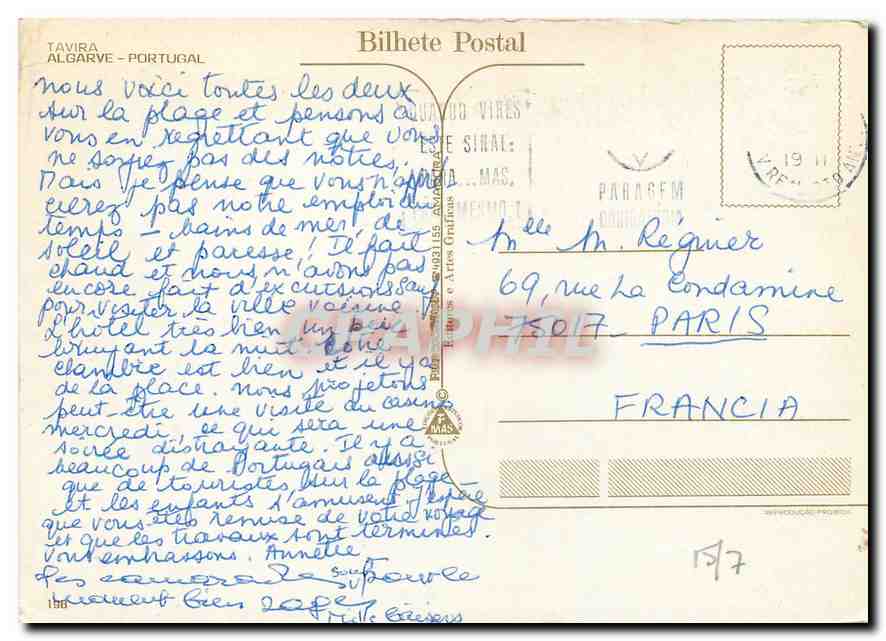 TAVIRA
ALGARVE - PORTUGAL
Bilhete Postal
nous voici toutes les deux
sur la plage et pensons à
vous en regrettant que vous
ne soyez pas des nôtres.
Mais je pense que vous n'appré
cierez pas notre emploi du
temps - bains de mer, de
soleil et paresse! Il fait
chaud et nous n'avons pas
encore fait d'excursions sauf
pour visiter la ville voisine
L'hôtel très bien un peu
bruyant la nuit. Notre
chambre est bien et il y a
de la place. Nous projetons
peut-être une visite au casino
mercredi, ce qui sera une
soirée distrayante. Il y a
beaucoup de Portugais aussi
que de touristes sur la plage
et les enfants s'amusent. J'espère
que vous êtes remise de votre voyage
et que les travaux sont terminés.
Vous embrassons. Annette
Les camarades sont pour le
moment bien sages
Mille baisers
198
QUANDO VIRES
ESTE SINAL:
MAS,
MESMO
PARAGEM
19 11
Edições e Artes Gráficas
AMADORA
CPAPHIL
F
MAS
PORTUGAL
Mlle M. Régnier
69, rue La Condamine
75017 PARIS
FRANCIA
REPRODUÇÃO PROIBIDA
15/7